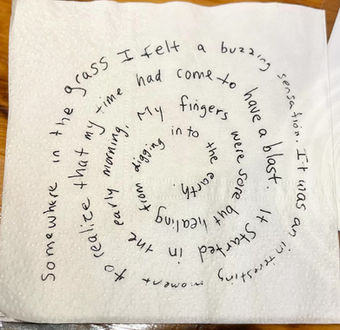 Somewhere in the grass I felt a buzzing sensation. It was an interesting moment to realize that my time had come to have a blast It started in the early morning. My fingers were sore but healing from digging in to the earth.